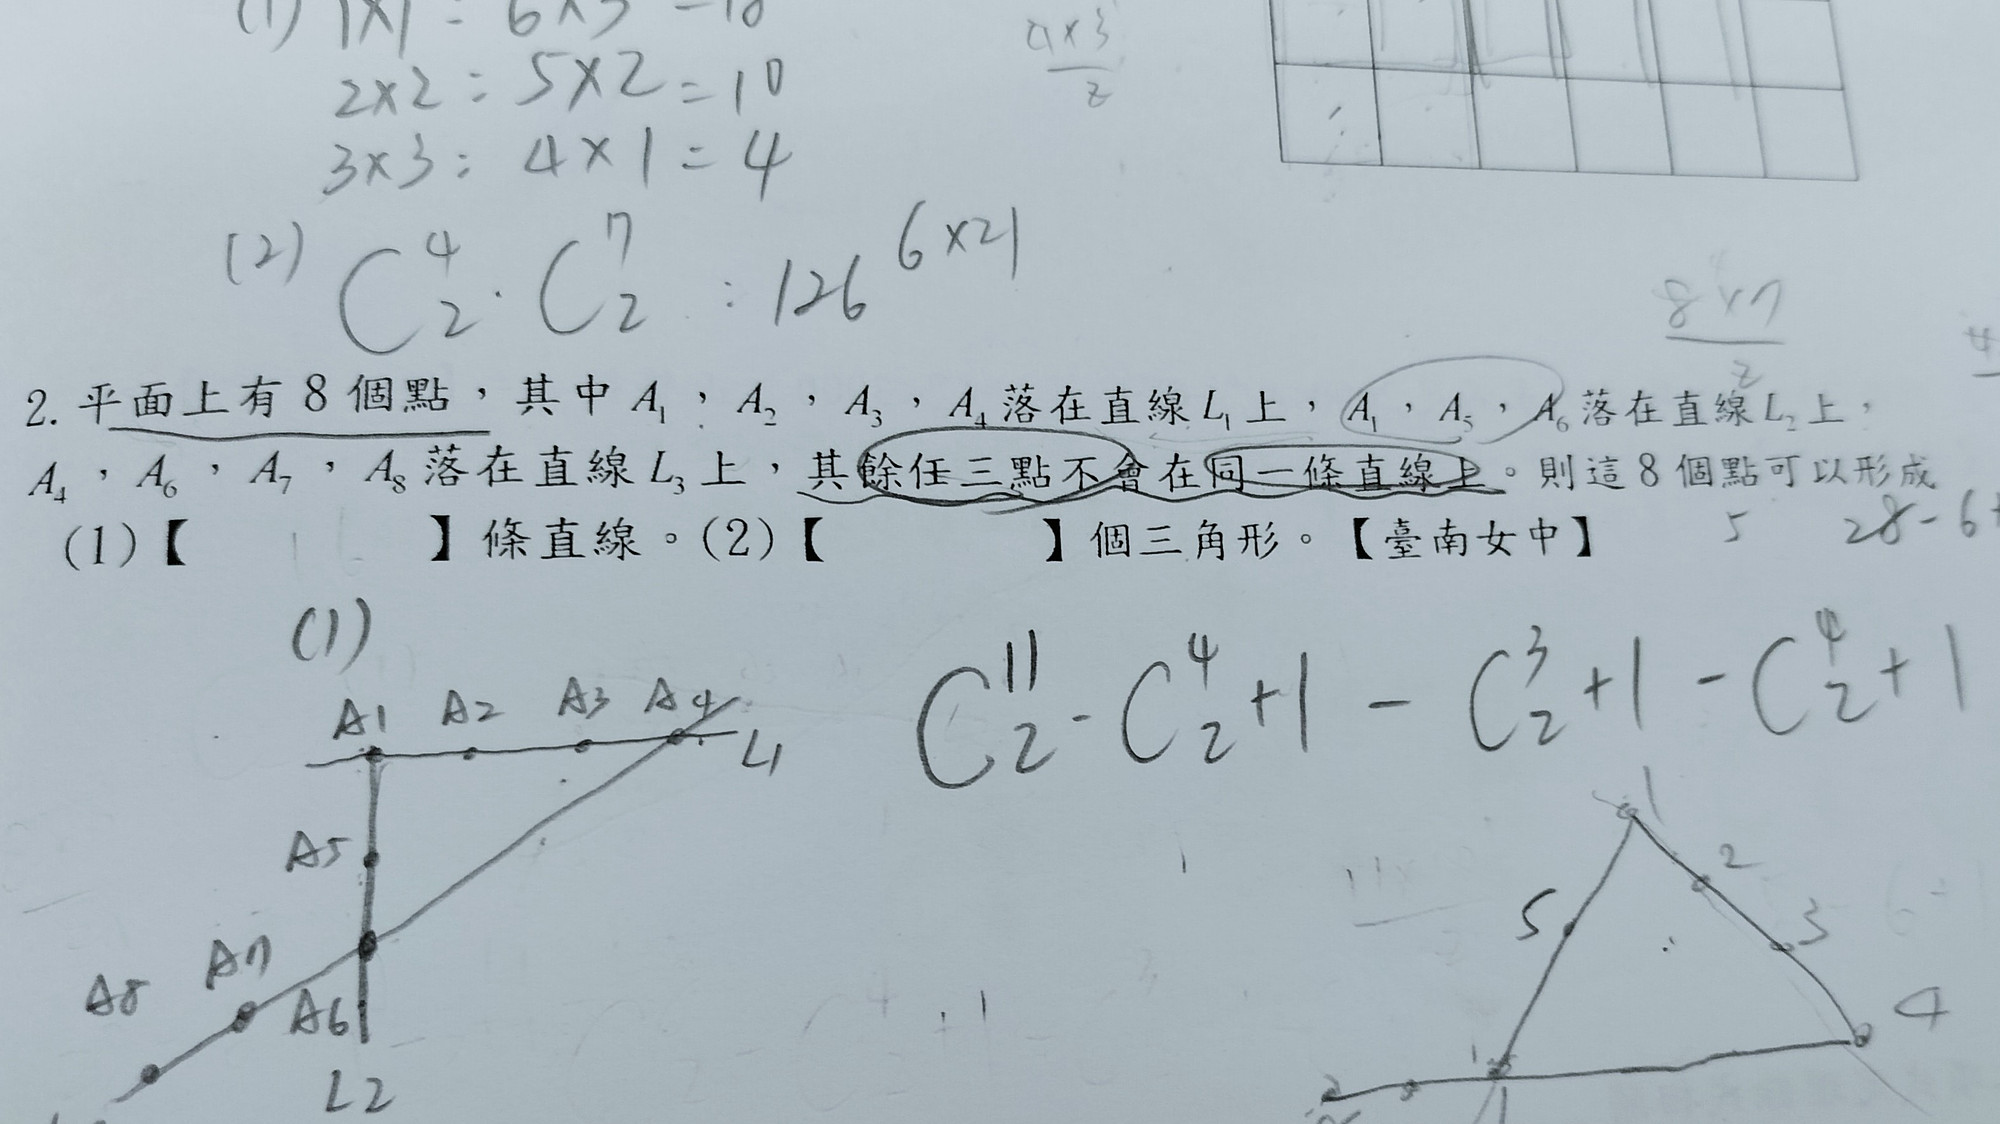 (1) 1×1 : 6×3 = 18
2×2 : 5×2 = 10
3×3 : 4×1 = 4
4×3
2
(2) C⁴₂ · C⁷₂ : 126 6×21
8×7
2
2. 平面上有 8 個點，其中 A₁，A₂，A₃，A₄ 落在直線 L₁ 上，A₁，A₅，A₆ 落在直線 L₂ 上，
A₄，A₆，A₇，A₈ 落在直線 L₃ 上，其餘任三點不會在同一條直線上。則這 8 個點可以形成
(1)【 】條直線。(2)【 】個三角形。【臺南女中】
5 28-6+
(1)
C¹¹₂ - C⁴₂ + 1 - C³₂ + 1 - C⁴₂ + 1
A1 A2 A3 A4
L1
A5
A8 A7 A6
L2
1
2
5 3
4